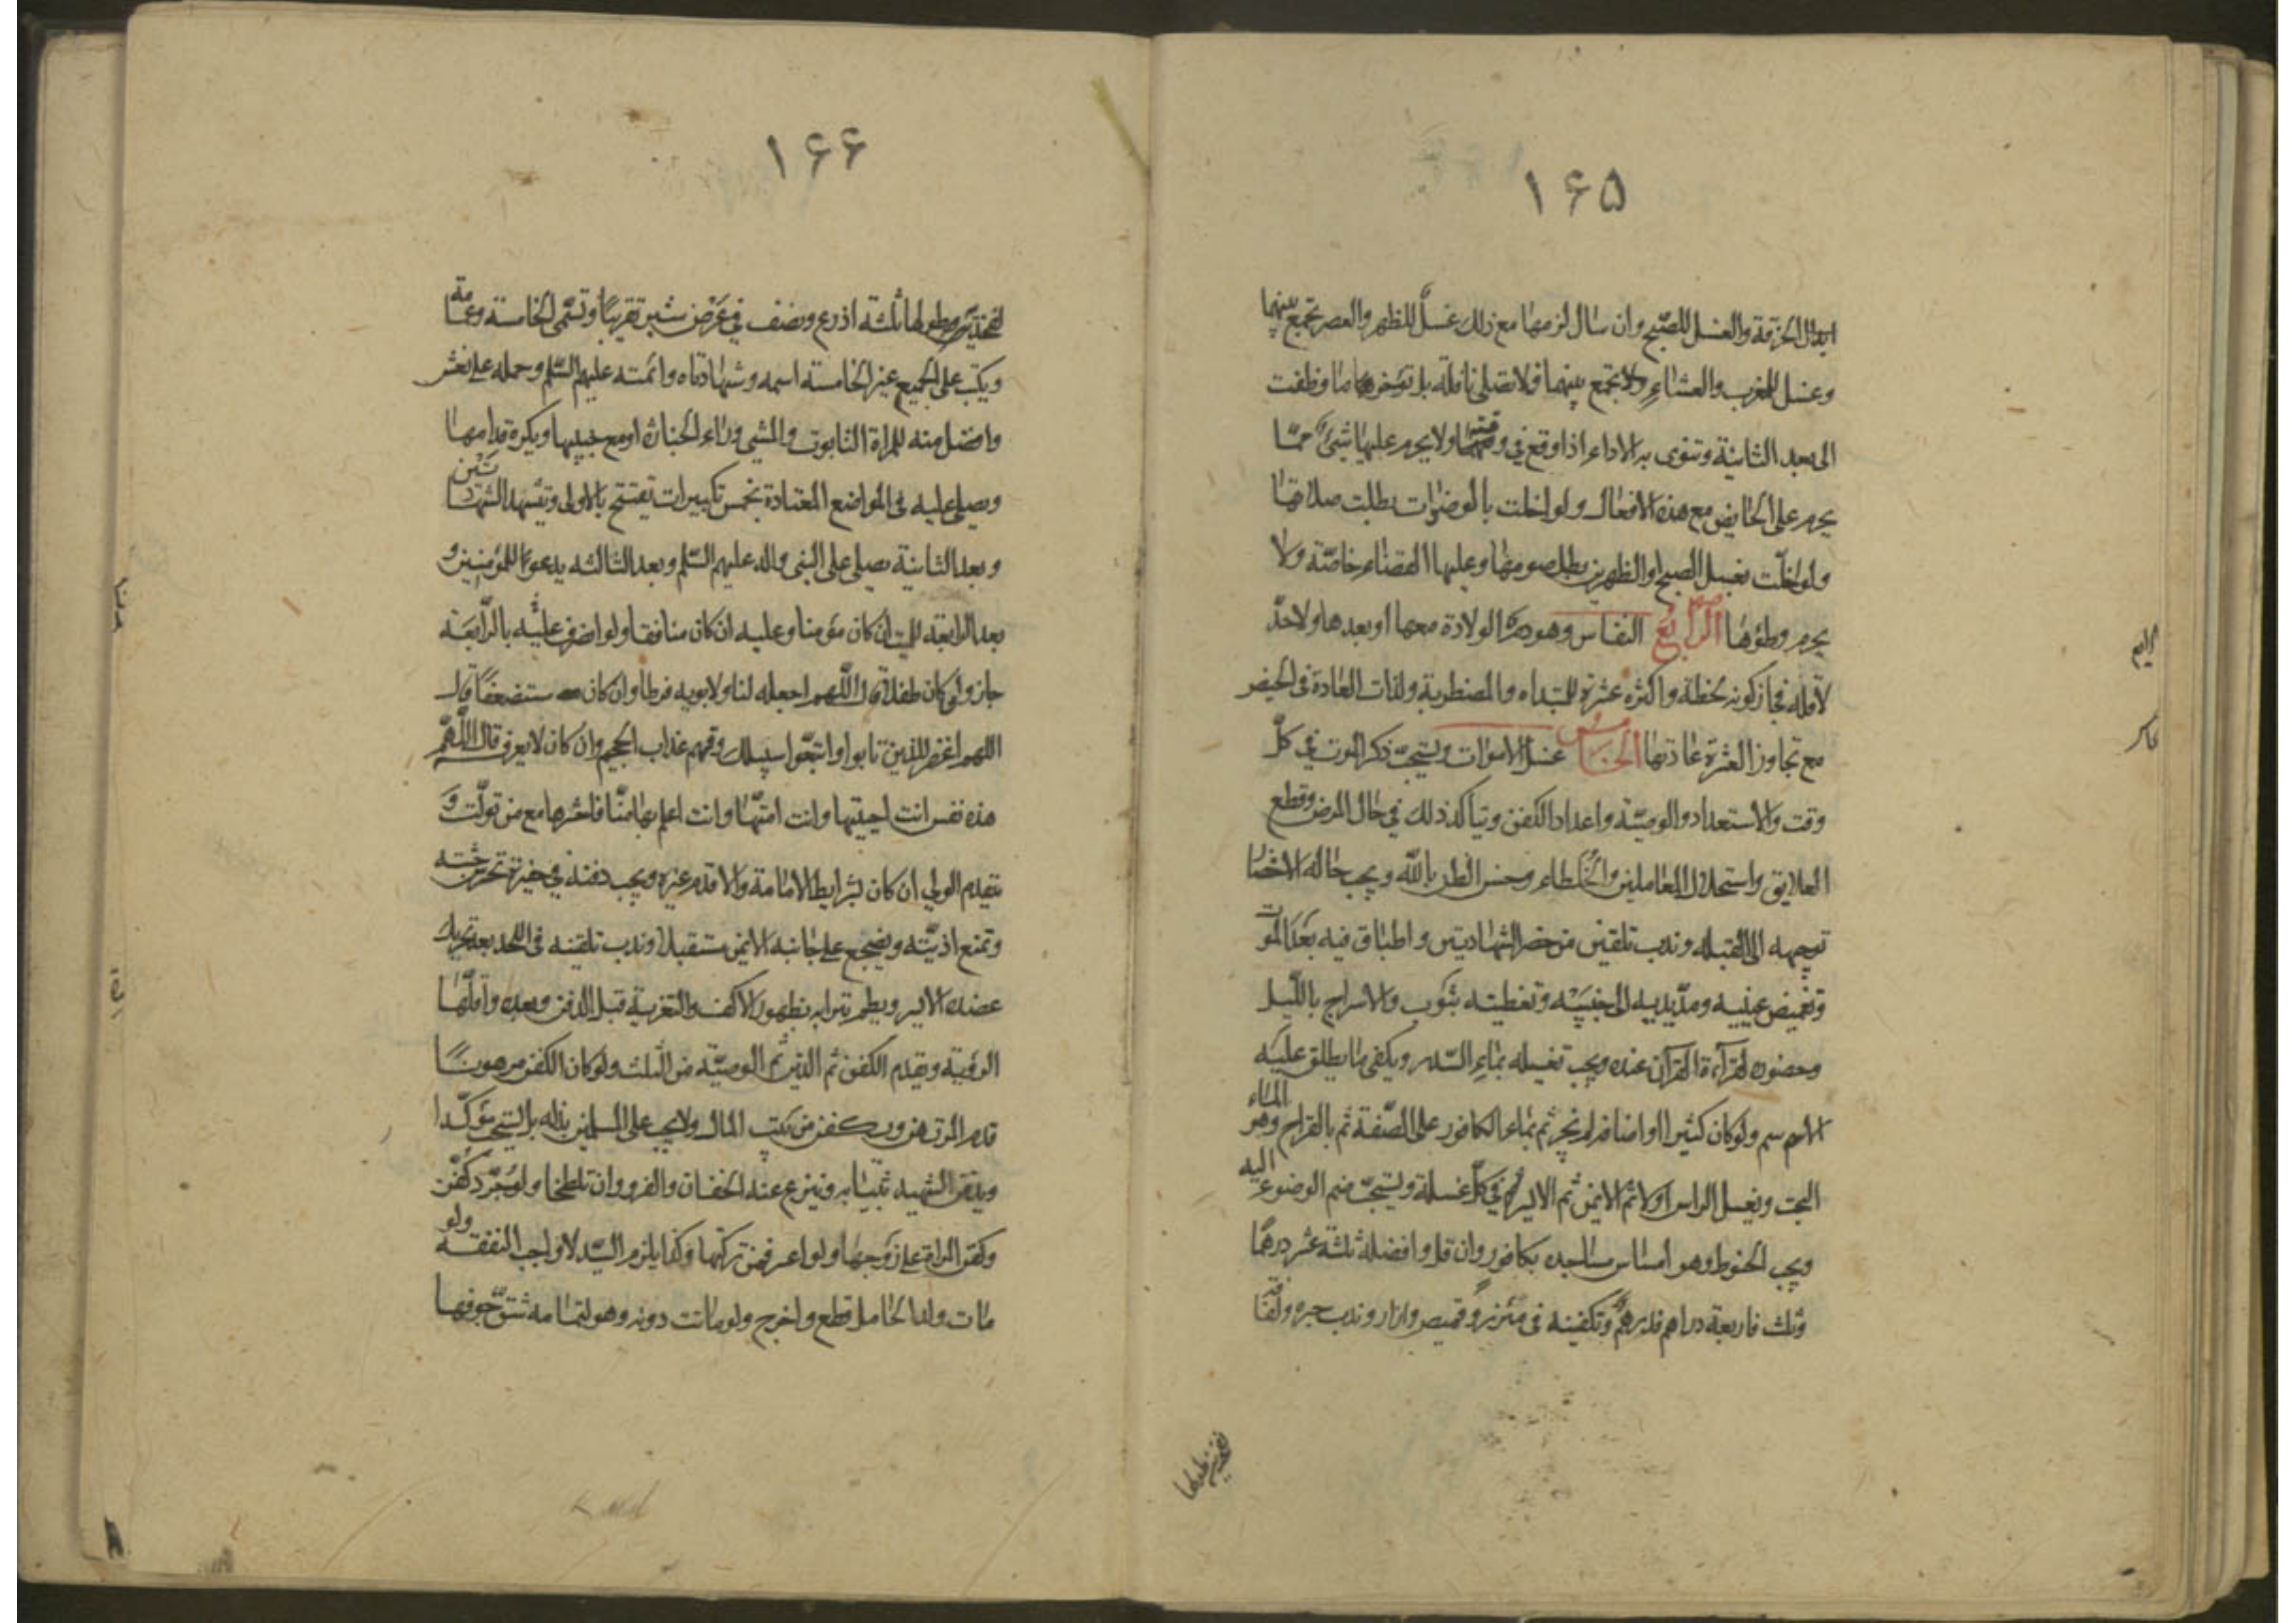 ١۶۵
ابدال الخرقة والغسل للصبح وان سال لزمها مع ذلك غسل للظهر والعصر تجمع بينهما
وغسل للمغرب والعشاء ولا تجمع بينهما ولا تصلى نافلة بل توخرها ما وظفت
الى بعد الثانية وتنوى به الاداء اذا وقع في وقتها ولا يحرم عليها شئ مما
يحرم على الحايض مع هذه الافعال ولو اخلت بالوضوات بطلت صلاتها
ولو اخلّت بغسل الصبح او الظهرين بطل صومها وعليها القضاء خاصّة ولا
يحرم وطؤها الرابع النفاس وهو دم الولادة معها او بعدها ولا حدّ
لاقله فجاز كونه لحظة واكثره عشرة للمبتداه والمضطربة ولذات العادة فى الحيض
مع تجاوز العشرة عادتها الخامس غسل الاموات ويستحبّ ذكر الموت في كلّ
وقت والاستعداد والوصيّة واعداد الكفن ويتاكد ذلك في حال المرض وقطع
العلايق واستحلال المعاملين والخلطاء وحسن الظن بالله ويجب حالة الاحتضار
توجيهه الى القبله وندب تلقين من حضر الشهادتين واطباق فيه بعد الموت
وتغميض عينيه ومدّ يديه الى جنبيه وتغطيته بثوب والاسراج بالليل
وحضور لقرآءة القرآن عنده ويجب تغسيله بماء السّدر ويكفى ما يطلق عليه
الاسم ولو كان كثيرا او اضافه لم تجز ثم بماء الكافور على الصّفة ثم بالقراح وهو الماء
البحت ويغسل الراس اولا ثم الايمن ثم الايسر في كلّ غسلة ويستحبّ ضم الوضوء اليه
ويجب الحنوط وهو امساس مساجده بكافور وان قل وافضله ثلثة عشر درهما
وثلث فاربعة دراهم فدرهم وتكفينه فى مئزر وقميص وازار وندب حبره ولفافة
لفخذيه طولها
١۶۶
لفخذيه طولها ثلثة اذرع ونصف في عرض شبر تقريبًا وتسمّى الخامسة وعمامة
ويكتب على الجميع غير الخامسة اسمه وشهادتاه وائمته عليهم السّلم وحمله على نعش
وافضل منه للمراة التابوت والمشي وراء الجنازة او مع جنبيها ويكره قدامها
ويصلى عليه فى المواضع المعتادة بخمس تكبيرات يفتتح بالاولى ويتشهد الشهادتين
وبعد الثانية يصلى على النبى واله عليهم السّلم وبعد الثالثه يدعو للمؤمنين و
بعد الرابعة للميت ان كان مؤمنا وعليه ان كان منافقا ولو انصرف عليه بالرّابعة
جاز ولو كان طفلا قال اللّهم اجعله لنا ولابويه فرطا وان كان مستضعفًا قال
اللهم اغفر للذين تابوا واتبعوا سبيلك وقهم عذاب الجحيم وان كان لا يعرف قال اللّهم
هذه نفس انت احييتها وانت امتّها وانت اعلم بها منّا فاحشرها مع من تولّت و
يتقدم الولي ان كان بشرايط الامامة والا قدم غيره ويجب دفنه في حفيرة تحرس جثته
وتمنع اذيّته ويضجع على جانبه الايمن مستقبلا وندب تلقينه فى اللحد بعد تحريك
عضده الايسر ويطم ترابه بظهور الاكف والتعزية قبل الدفن وبعده واقلّها
الرؤية ويقدم الكفن ثم الدين ثم الوصيّة من الثلث ولو كان الكفن مرهونًا
قدم المرتهن ويكفن من بيت المال ولا يجب على المسلمين بذله بل يستحب مؤكّدا
ويدفن الشهيد بثيابه وينزع عنه الخفان والفرو وان تلطخا ولو جُرّد كفّن
وكفن المراة على زوجها ولو اعسر فمن تركتها وكذا يلزم السيّد لا واجب النفقه ولو
مات ولد الحامل قطع واخرج ولو ماتت دونه وهو لتمامه شقّ جوفها